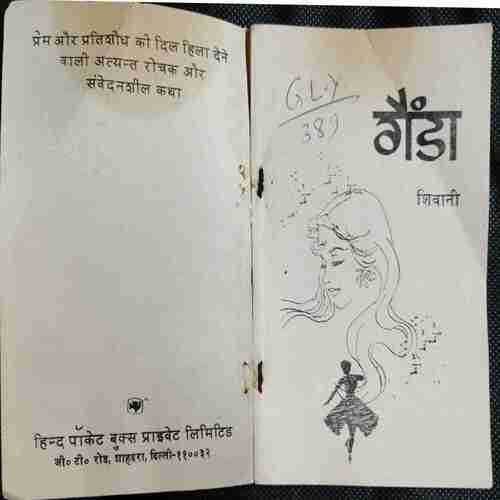 प्रेम और प्रतिशोध को दिल हिला देने
वाली अत्यन्त रोचक और
संवेदनशील कथा
हिन्द पॉकेट बुक्स प्राइवेट लिमिटिड
जी० टी० रोड, शाहदरा, दिल्ली-११००३२
GLY
389
गैंडा
शिवानी